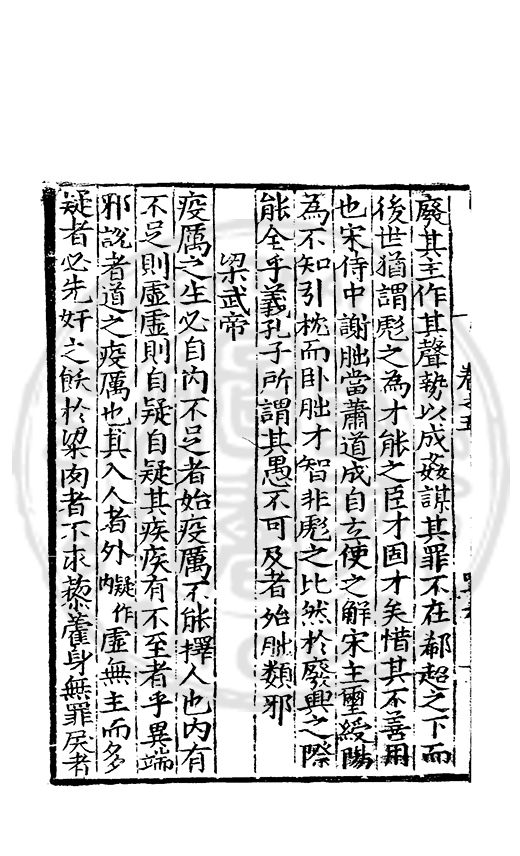 廢其主作其聲勢以成姦謀其罪不在郗超之下而
後世猶謂彪之為才能之臣才固才矣惜其不善用
也宋侍中謝朏當蕭道成自立使之解宋主璽綬陽
為不知引枕而卧朏才智非彪之比然於廢興之際
能全乎義孔子所謂其愚不可及者殆朏類邪
梁武帝
疫厲之生必自內不足者始疫厲不能擇人也內有
不足則虛虛則自疑自疑其疾疾有不至者乎異端
邪說者道之疫厲也其入人者外疑作內虛無主而多
疑者必先奸之飫於粱肉者不求藜藿身無罪戾者